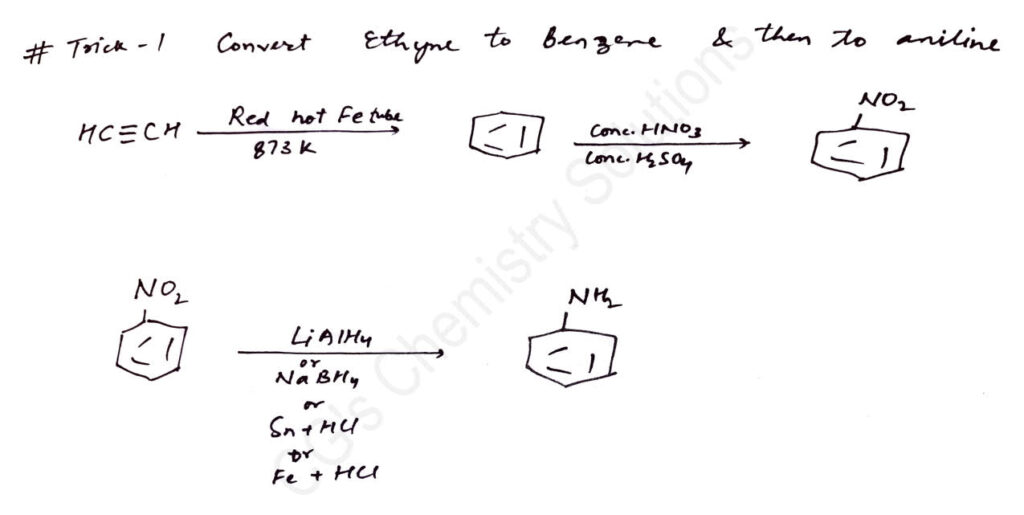 # Trick-1 Convert Ethyne to Benzene & then to aniline
HC≡CH Red hot Fe tube
873 K
Conc. HNO3
Conc. H2SO4
NO2
NO2
LiAlH4
or
NaBH4
or
Sn + HCl
or
Fe + HCl
NH2
CG's Chemistry Solutions